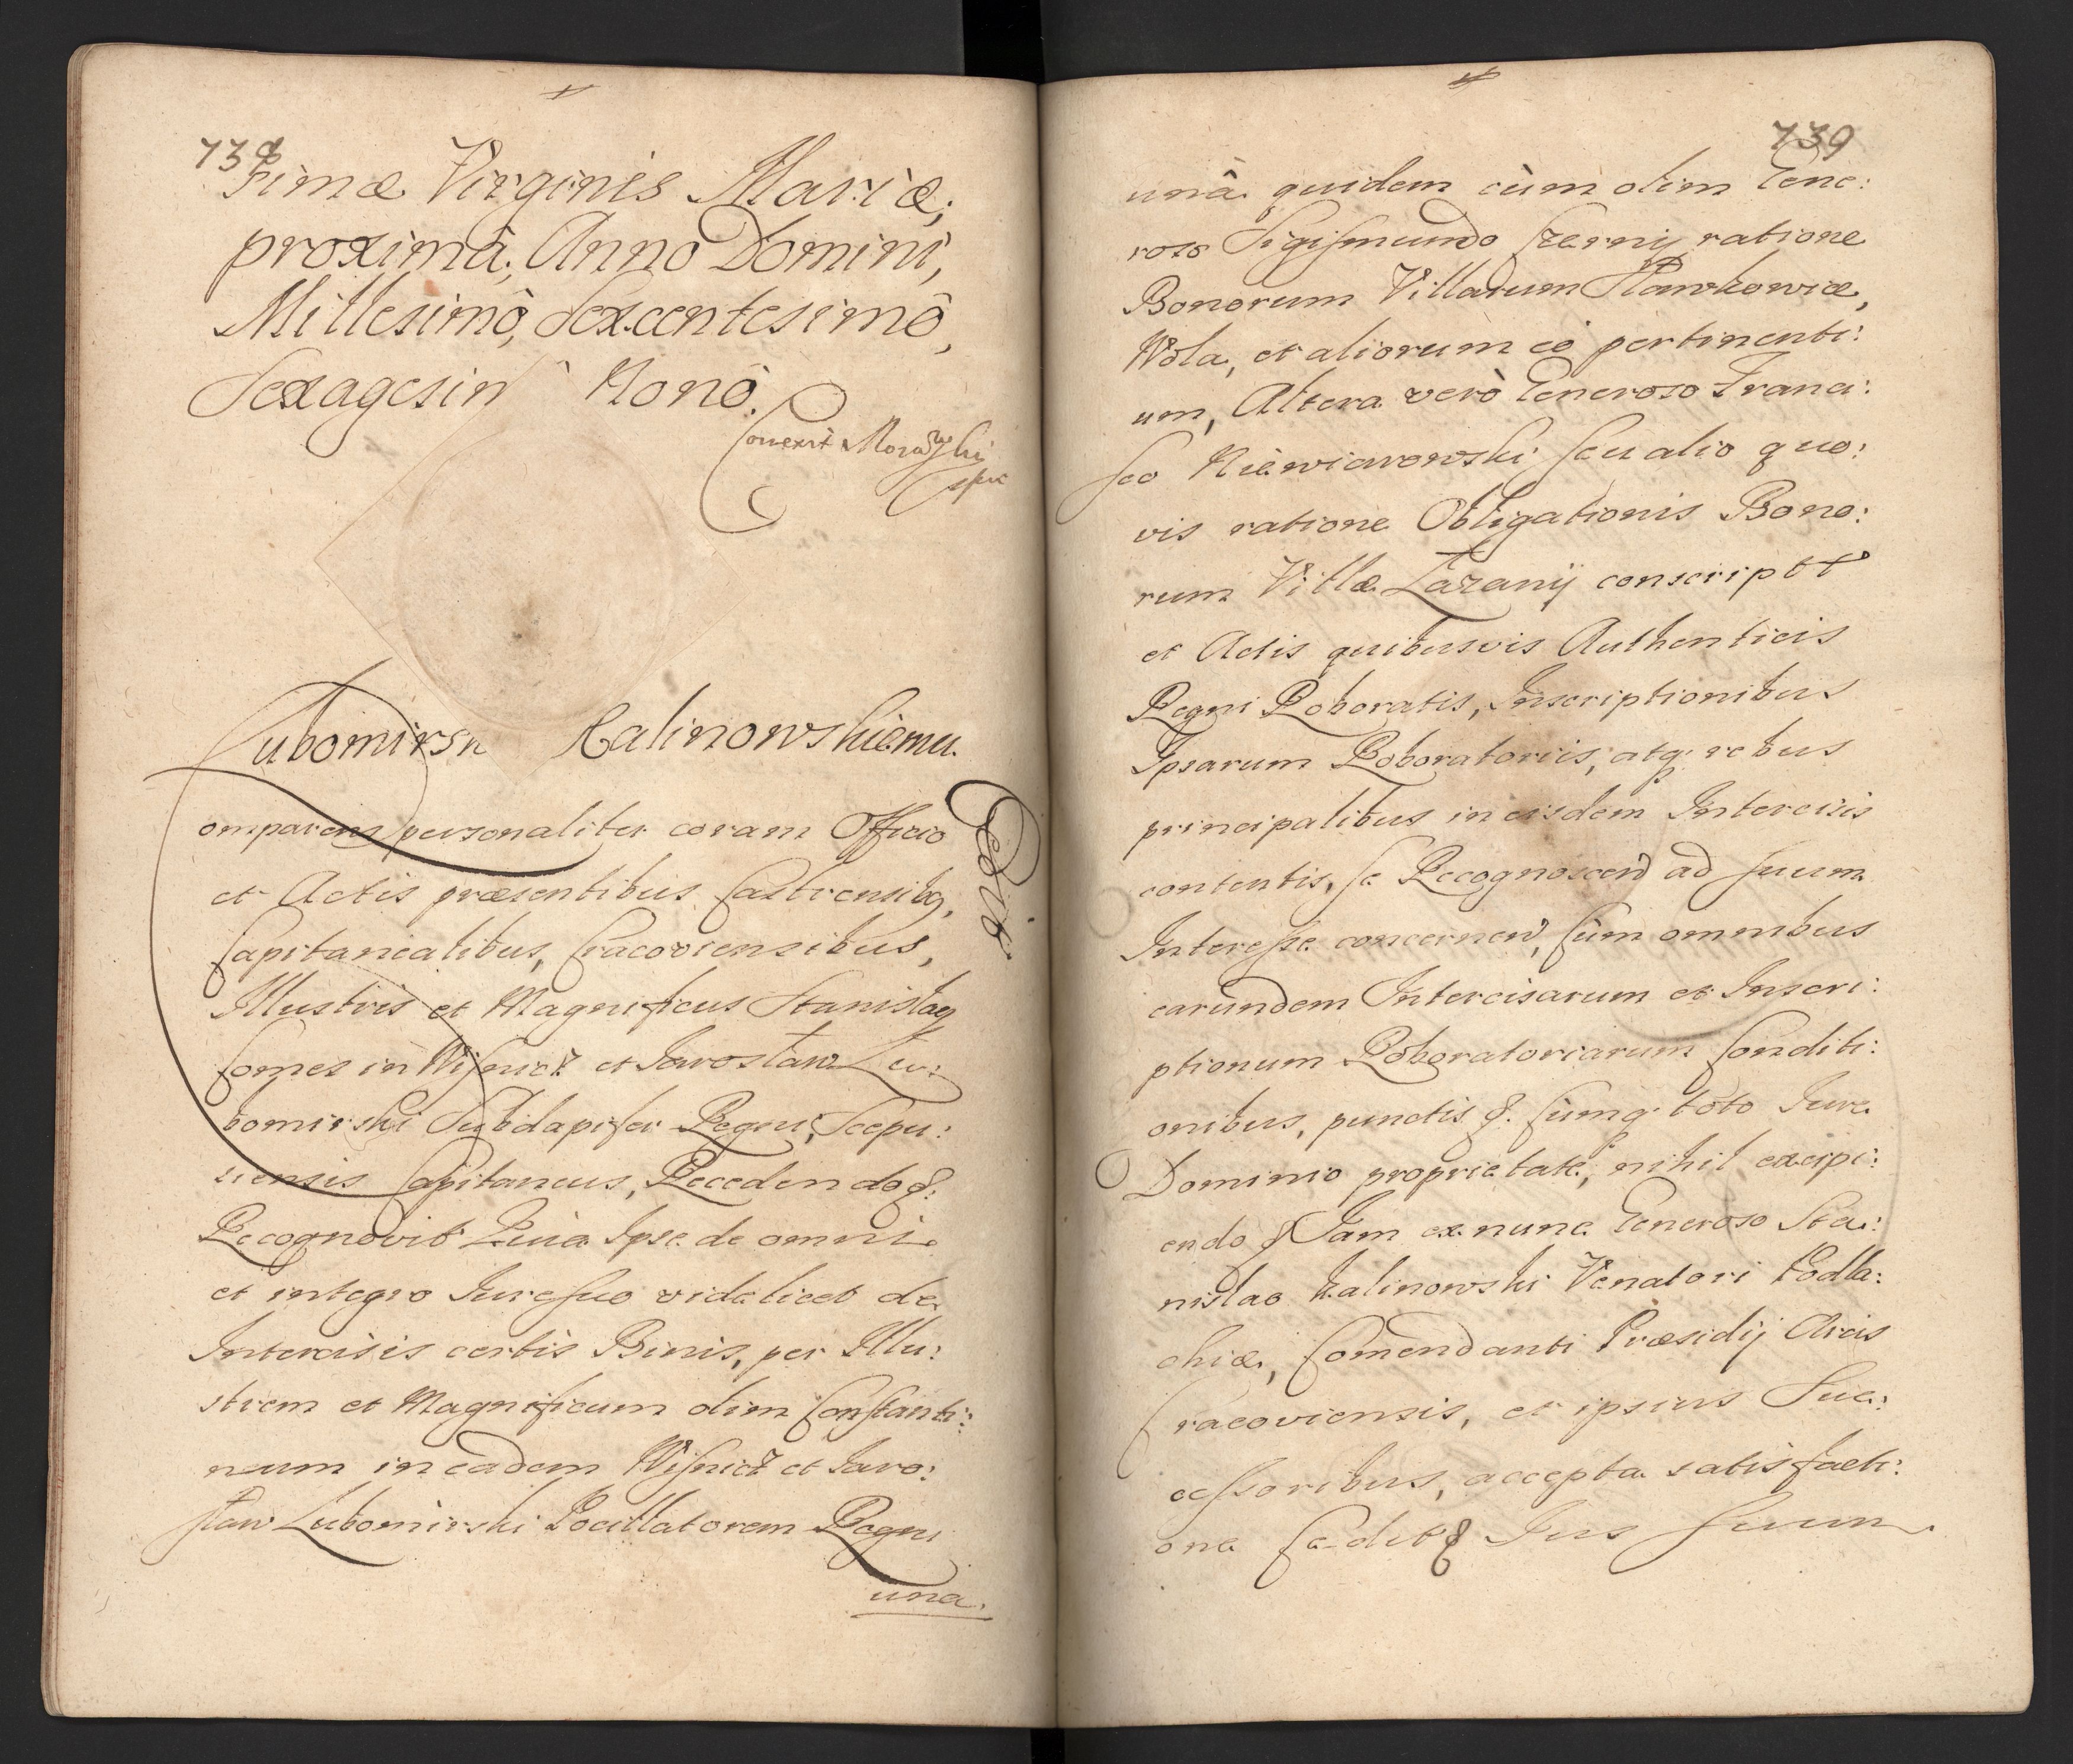 738
simæ Virginis Mariæ,
proximâ, Anno Domini,
Millesimô, Sexcentesimô,
Sexagesim Nonô.
Lubomirski Kalinowskiemu.
Cedit
omparens personaliter coram Officio
et Actis præsentibus Castrensibq,
Capitanealibus, Cracoviensibus,
Illustris et Magnificus Stanislaq
Comes in Wisnicz et Jarosław Lu:
bomirski Subdapifer Regni, Scepu:
siensis Capitaneus, Recedendo &:
Recognovit Quia Ipse de omni
et integro Jure suo videlicet de
Intercisis certis Binis, per Illu:
strem et Magnificum olim Constanti:
num in eadem Wisnicz et Jaro:
sław Lubomirski Pocillatorem Regni
una.
739
unâ quidem cùm olim Gene:
roso Sigismundo Czerny ratione
Bonorum Villarum Sławkowice,
Wola, et aliorum eò pertinenti:
um, Altera verò Generoso Franci:
sco Niewiarowski seu alio quo:
vis ratione Obligationis Bono:
rum Villæ Łazany conscriptt
et Actis quibusvis Authenticis
Regni Roboratis, Inscriptionibus
Ipsarum Roboratoriis, atq; rebus
principalibus in eisdem Intercisis
contentis, se Recognoscend ad suum
Interesse concernend, Cùm omnibus
earundem Intercisarum et Inscri:
ptionum Roboratoriarum Conditi:
onibus, punctis &. Cùmq; tòto Jure
Dominio proprietate, nihil excipi:
endo & Jam ex nunc Generoso Sta:
nislao Kalinowski Venatori Podla:
chiæ, Comendanti Præsidij Arcis
Cracoviensis, et ipsius Suc:
cessoribus, accepta satisfacti:
one Cedit & Jus suum